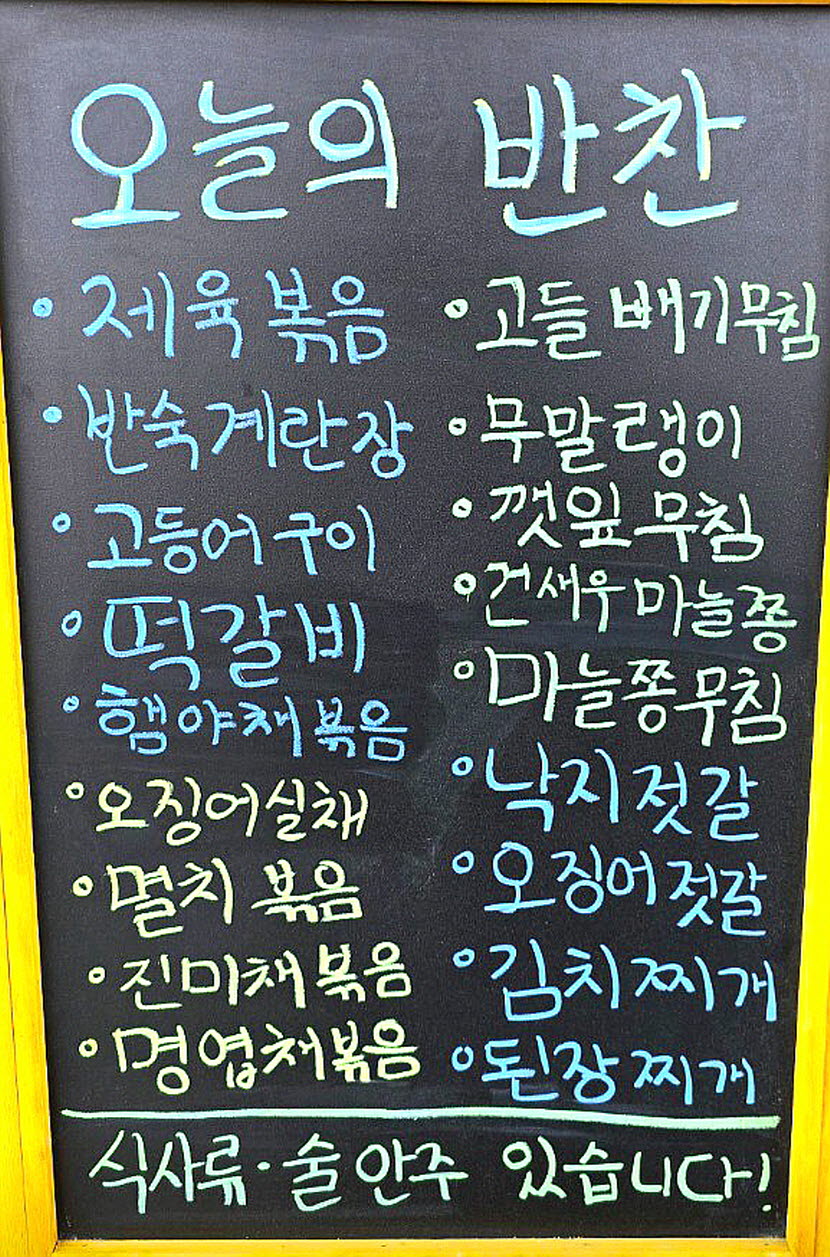 오늘의 반찬
제육볶음
반숙계란장
고등어구이
떡갈비
햄야채볶음
오징어실채
멸치볶음
진미채볶음
명엽채볶음
고들빼기무침
무말랭이
깻잎무침
건새우마늘쫑
마늘쫑무침
낙지젓갈
오징어젓갈
김치찌개
된장찌개
식사류·술안주 있습니다!